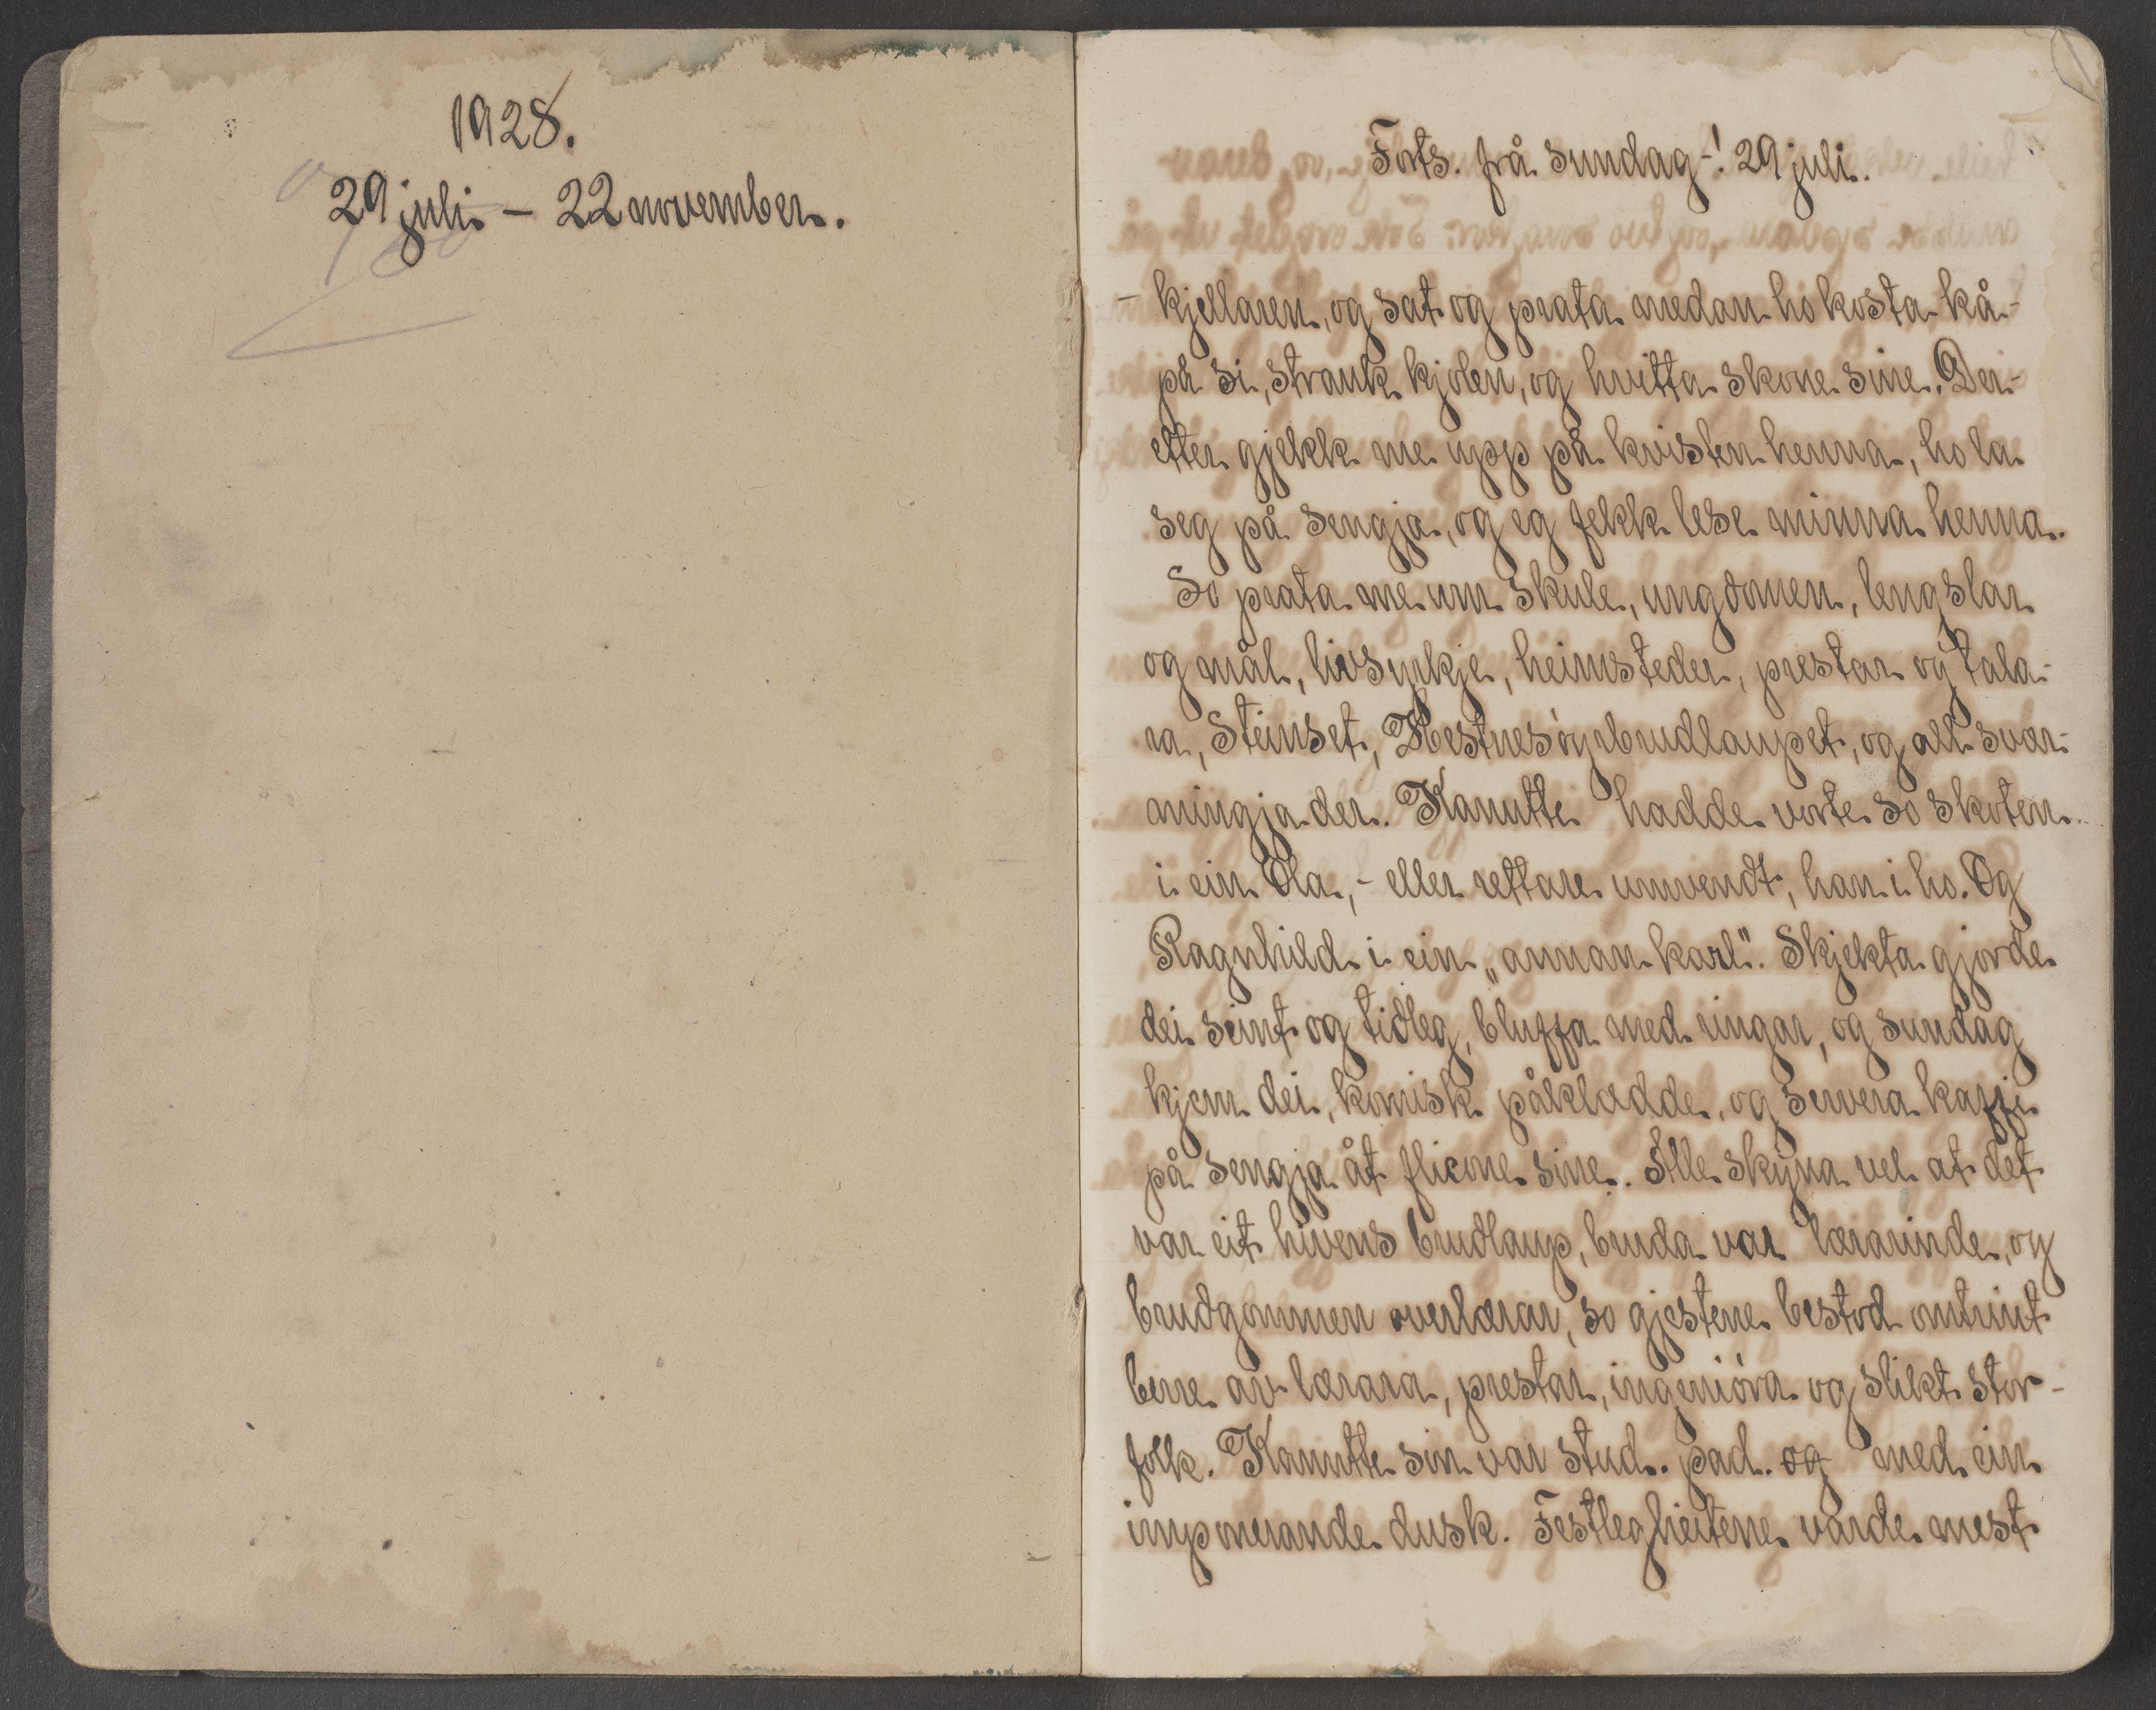 1928.
29 juli - 22 november.
Forts. frå sundag -! 29 juli.
- kjellaren, og sat og prata medan ho kosta kå-
på si, strauk kjolen, og hvitta skone sine. Der-
etter gjekk me upp på kvisten henna, ho la
seg på sengja, og eg fekk lese minna henna.
So prata me um skule, ungdomen, lengslar
og mål, livsyrkje, heimsteder, prestar og tala-
ra, Steinset, Hestnesøybrudlaupet, og all svær-
mingja der. Kanutte hadde vorte so skoten
i ein Ola, - eller rettare umvendt, han i ho. Og
Ragnhild i ein „annan karl". Skjekta gjorde
dei seint og tidleg, bluffa med ringar, og sundag
kjem dei, komisk påklædde, og servera kaffi
på sengja åt flicone sine. Alle skyna vel at det
var eit hivens brudlaup, bruda var lærarinde, og
brudgommen overlærar, so gjestene bestod omtrint
berre av lærara, prestar, ingeniöra og slikt stor-
folk. Kanutte sin var stud. pad. og med ein
imponerande dusk. Festlegheitene varde mest